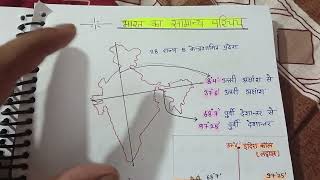 भारत का सामान्य परिचय
28 राज्य 8 केन्द्रशासित प्रदेश
8°4' उत्तरी अक्षांश से
37°6' उत्तरी अक्षांश
68°7' पूर्वी देशान्तर से
97°25' पूर्वी देशान्तर
इंदिरा कॉल
68°7'
97°25'